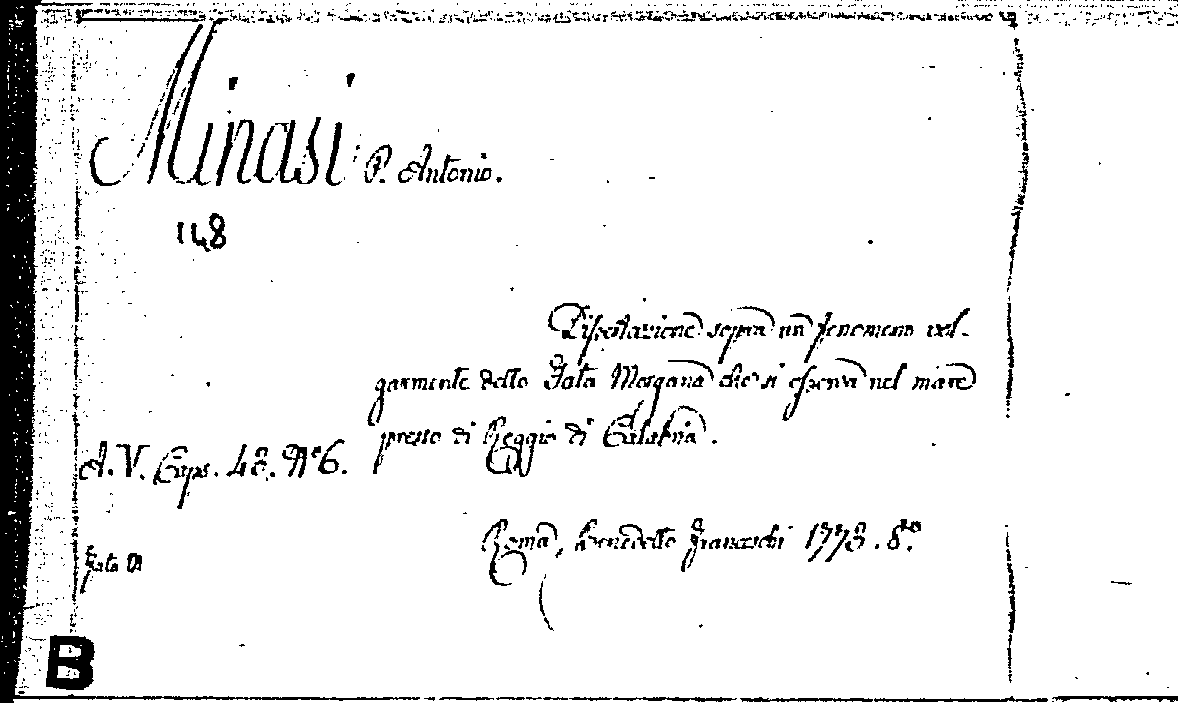 Minasi P. Antonio.
148
Dissertazione sopra un fenomeno vol-
garmente detto Fata Morgana che si osserva nel mare
presso di Reggio di Calabria.
A. V. Caps. 48. N.o 6.
Roma, Benedetto Franceschi 1773. 8.vo
fata
B